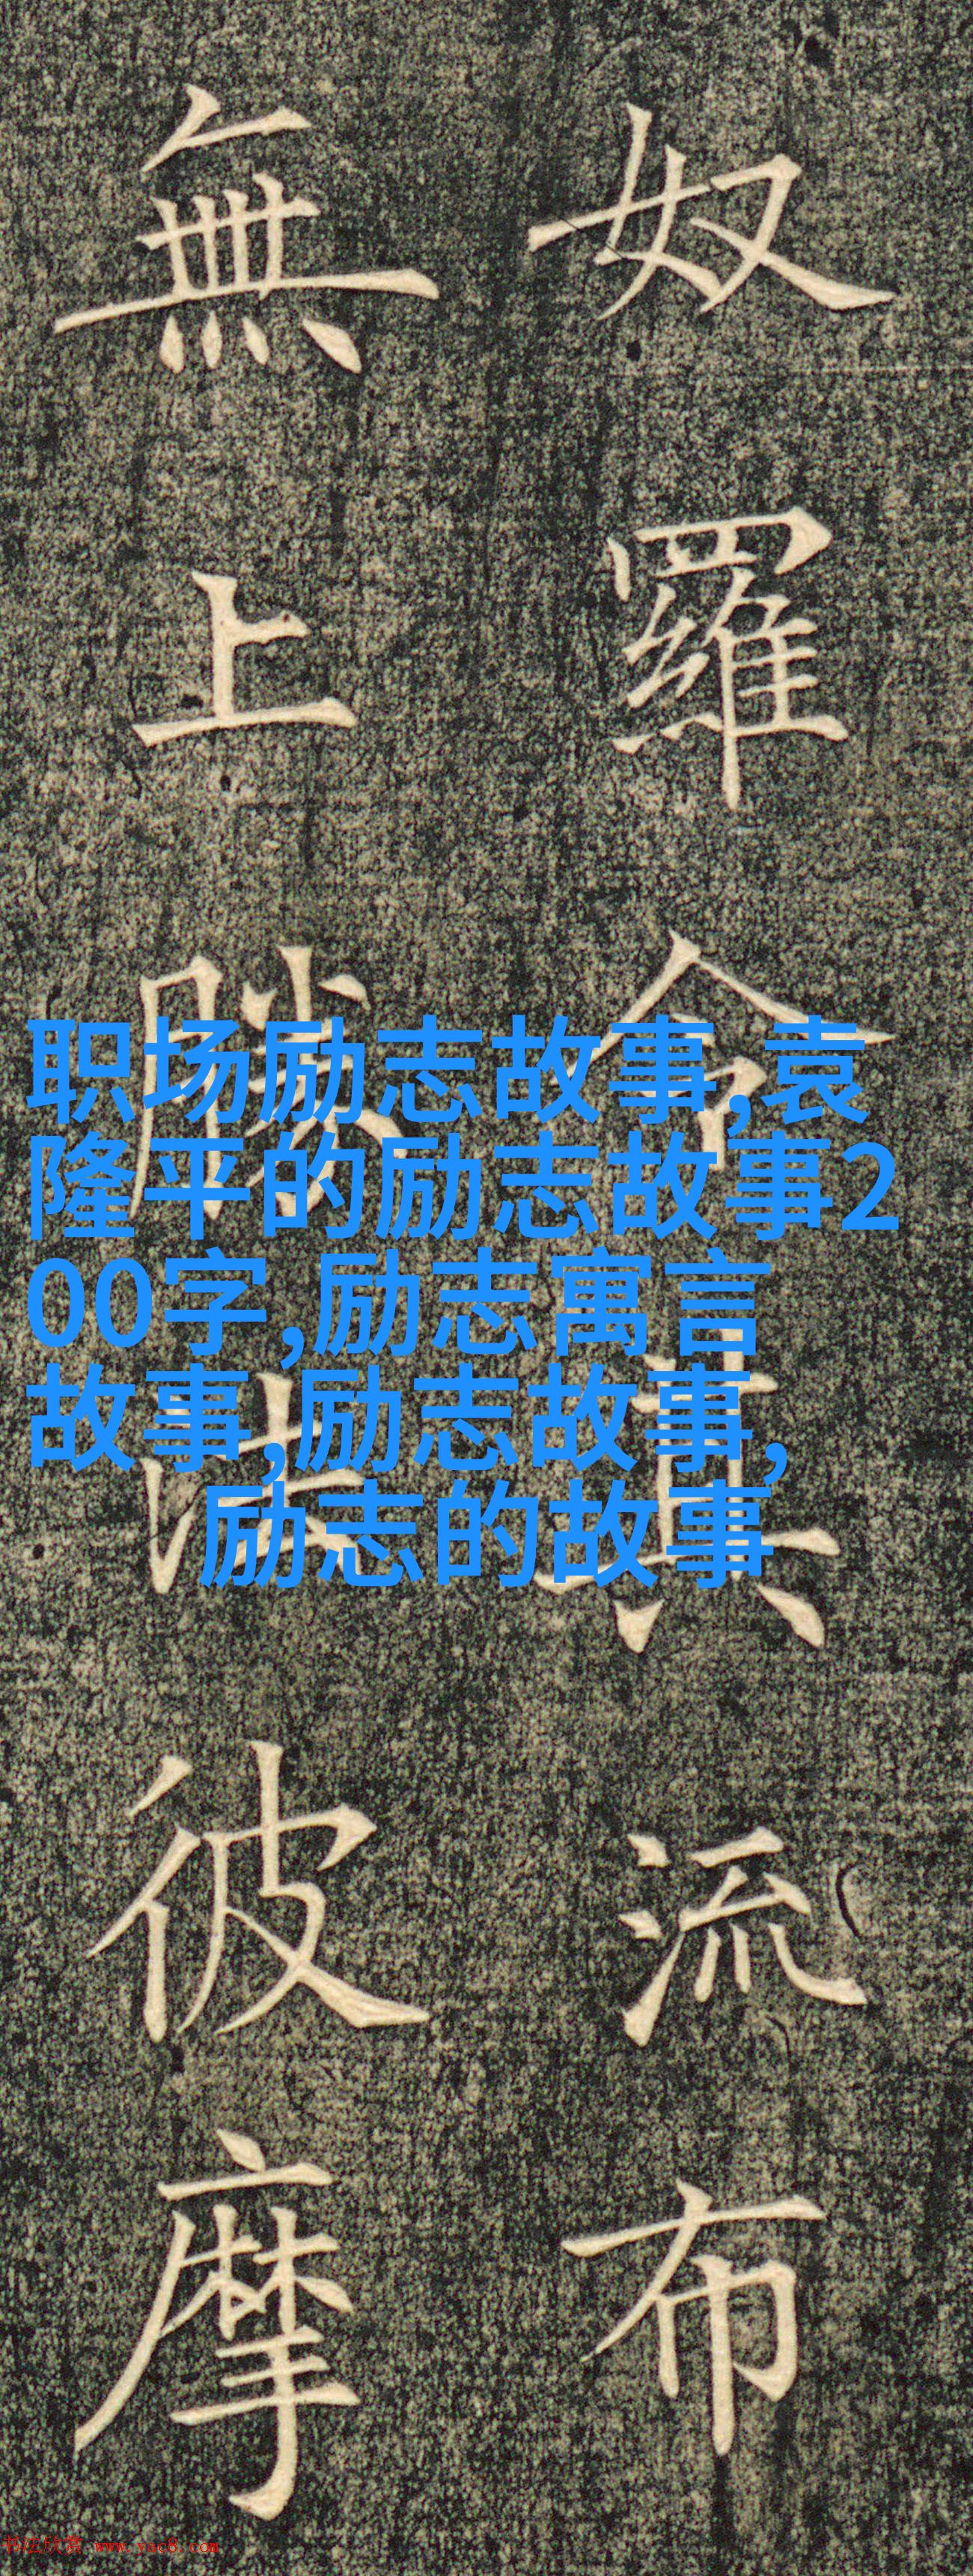 奴羅令其流布
無上勝法彼摩
职场励志故事,袁
隆平的励志故事2
00字,励志寓言
故事,励志故事,
励志的故事
书法欣赏 www.yac8.com